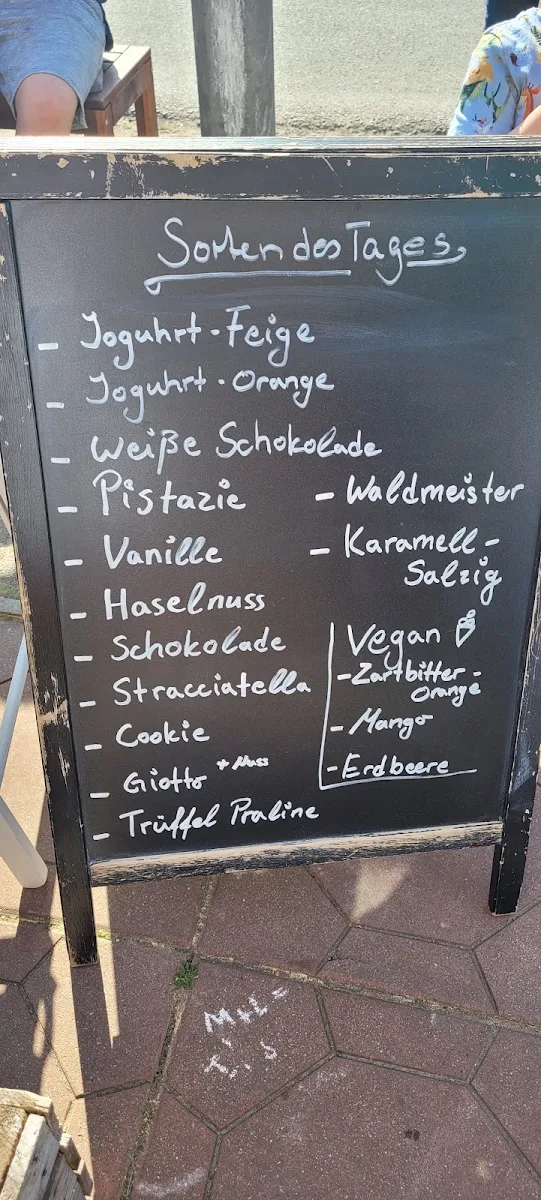 Sorten des Tages
- Joguhrt - Feige
- Joguhrt - Orange
- Weiße Schokolade
- Pistazie
- Vanille
- Haselnuss
- Schokolade
- Stracciatella
- Cookie
- Giotto + Nuss
- Trüffel Praline
- Waldmeister
- Karamell -
Salzig
Vegan
- Zartbitter -
Orange
- Mango
- Erdbeere